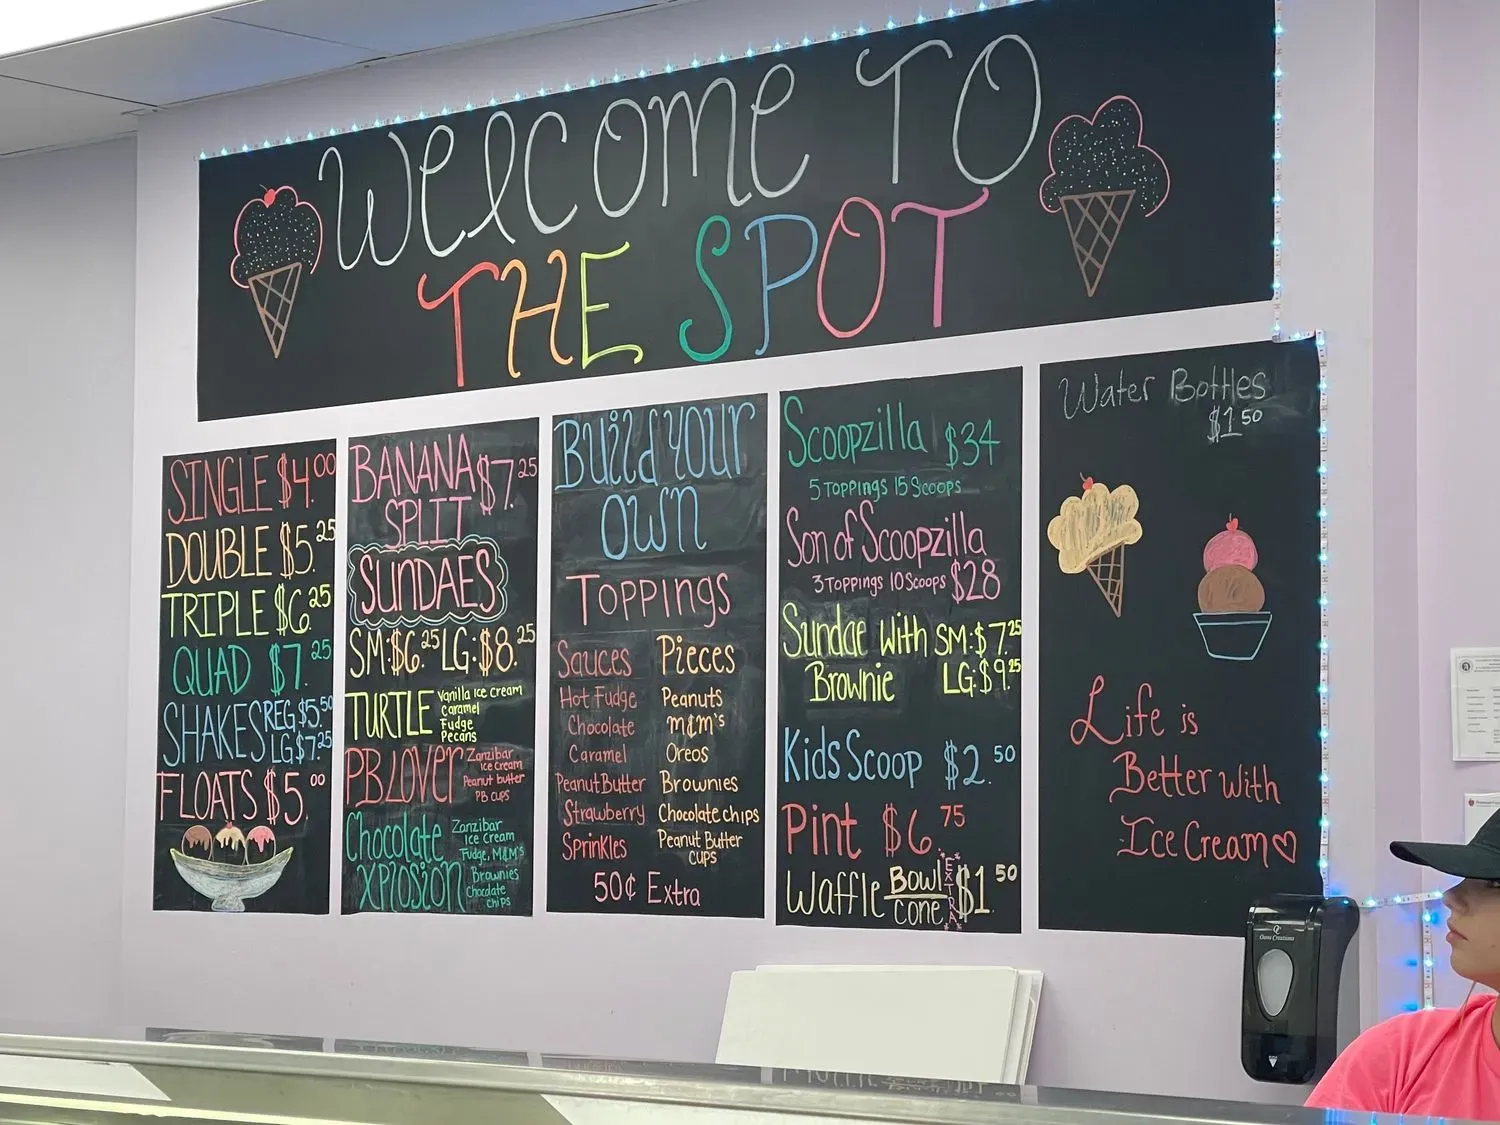 Welcome To
THE SPOT
SINGLE $4.00
DOUBLE $5.25
TRIPLE $6.25
QUAD $7.25
SHAKES REG $5.50
LG $7.25
FLOATS $5.00
BANANA $7.25
SPLIT
SUNDAES
SM:$6.25 LG:$8.25
TURTLE Vanilla Ice Cream
Caramel
Fudge
Pecans
PB Lover Zanzibar
Ice Cream
Peanut butter
PB cups
Chocolate Zanzibar
Ice Cream
Fudge, M&M's
Xplosion Brownies
Chocolate
chips
Build your
own
Toppings
Sauces
Hot Fudge
Chocolate
Caramel
Peanut Butter
Strawberry
Sprinkles
Pieces
Peanuts
M&M's
Oreos
Brownies
Chocolate chips
Peanut Butter
cups
50¢ Extra
Scoopzilla $34
5 Toppings 15 Scoops
Son of Scoopzilla
3 Toppings 10 Scoops $28
Sundae With SM:$7.25
Brownie LG:$9.25
Kids Scoop $2.50
Pint $6.75
Waffle Bowl
Cone EXTRA $1.50
Water Bottles
$1.50
Life is
Better with
Ice Cream